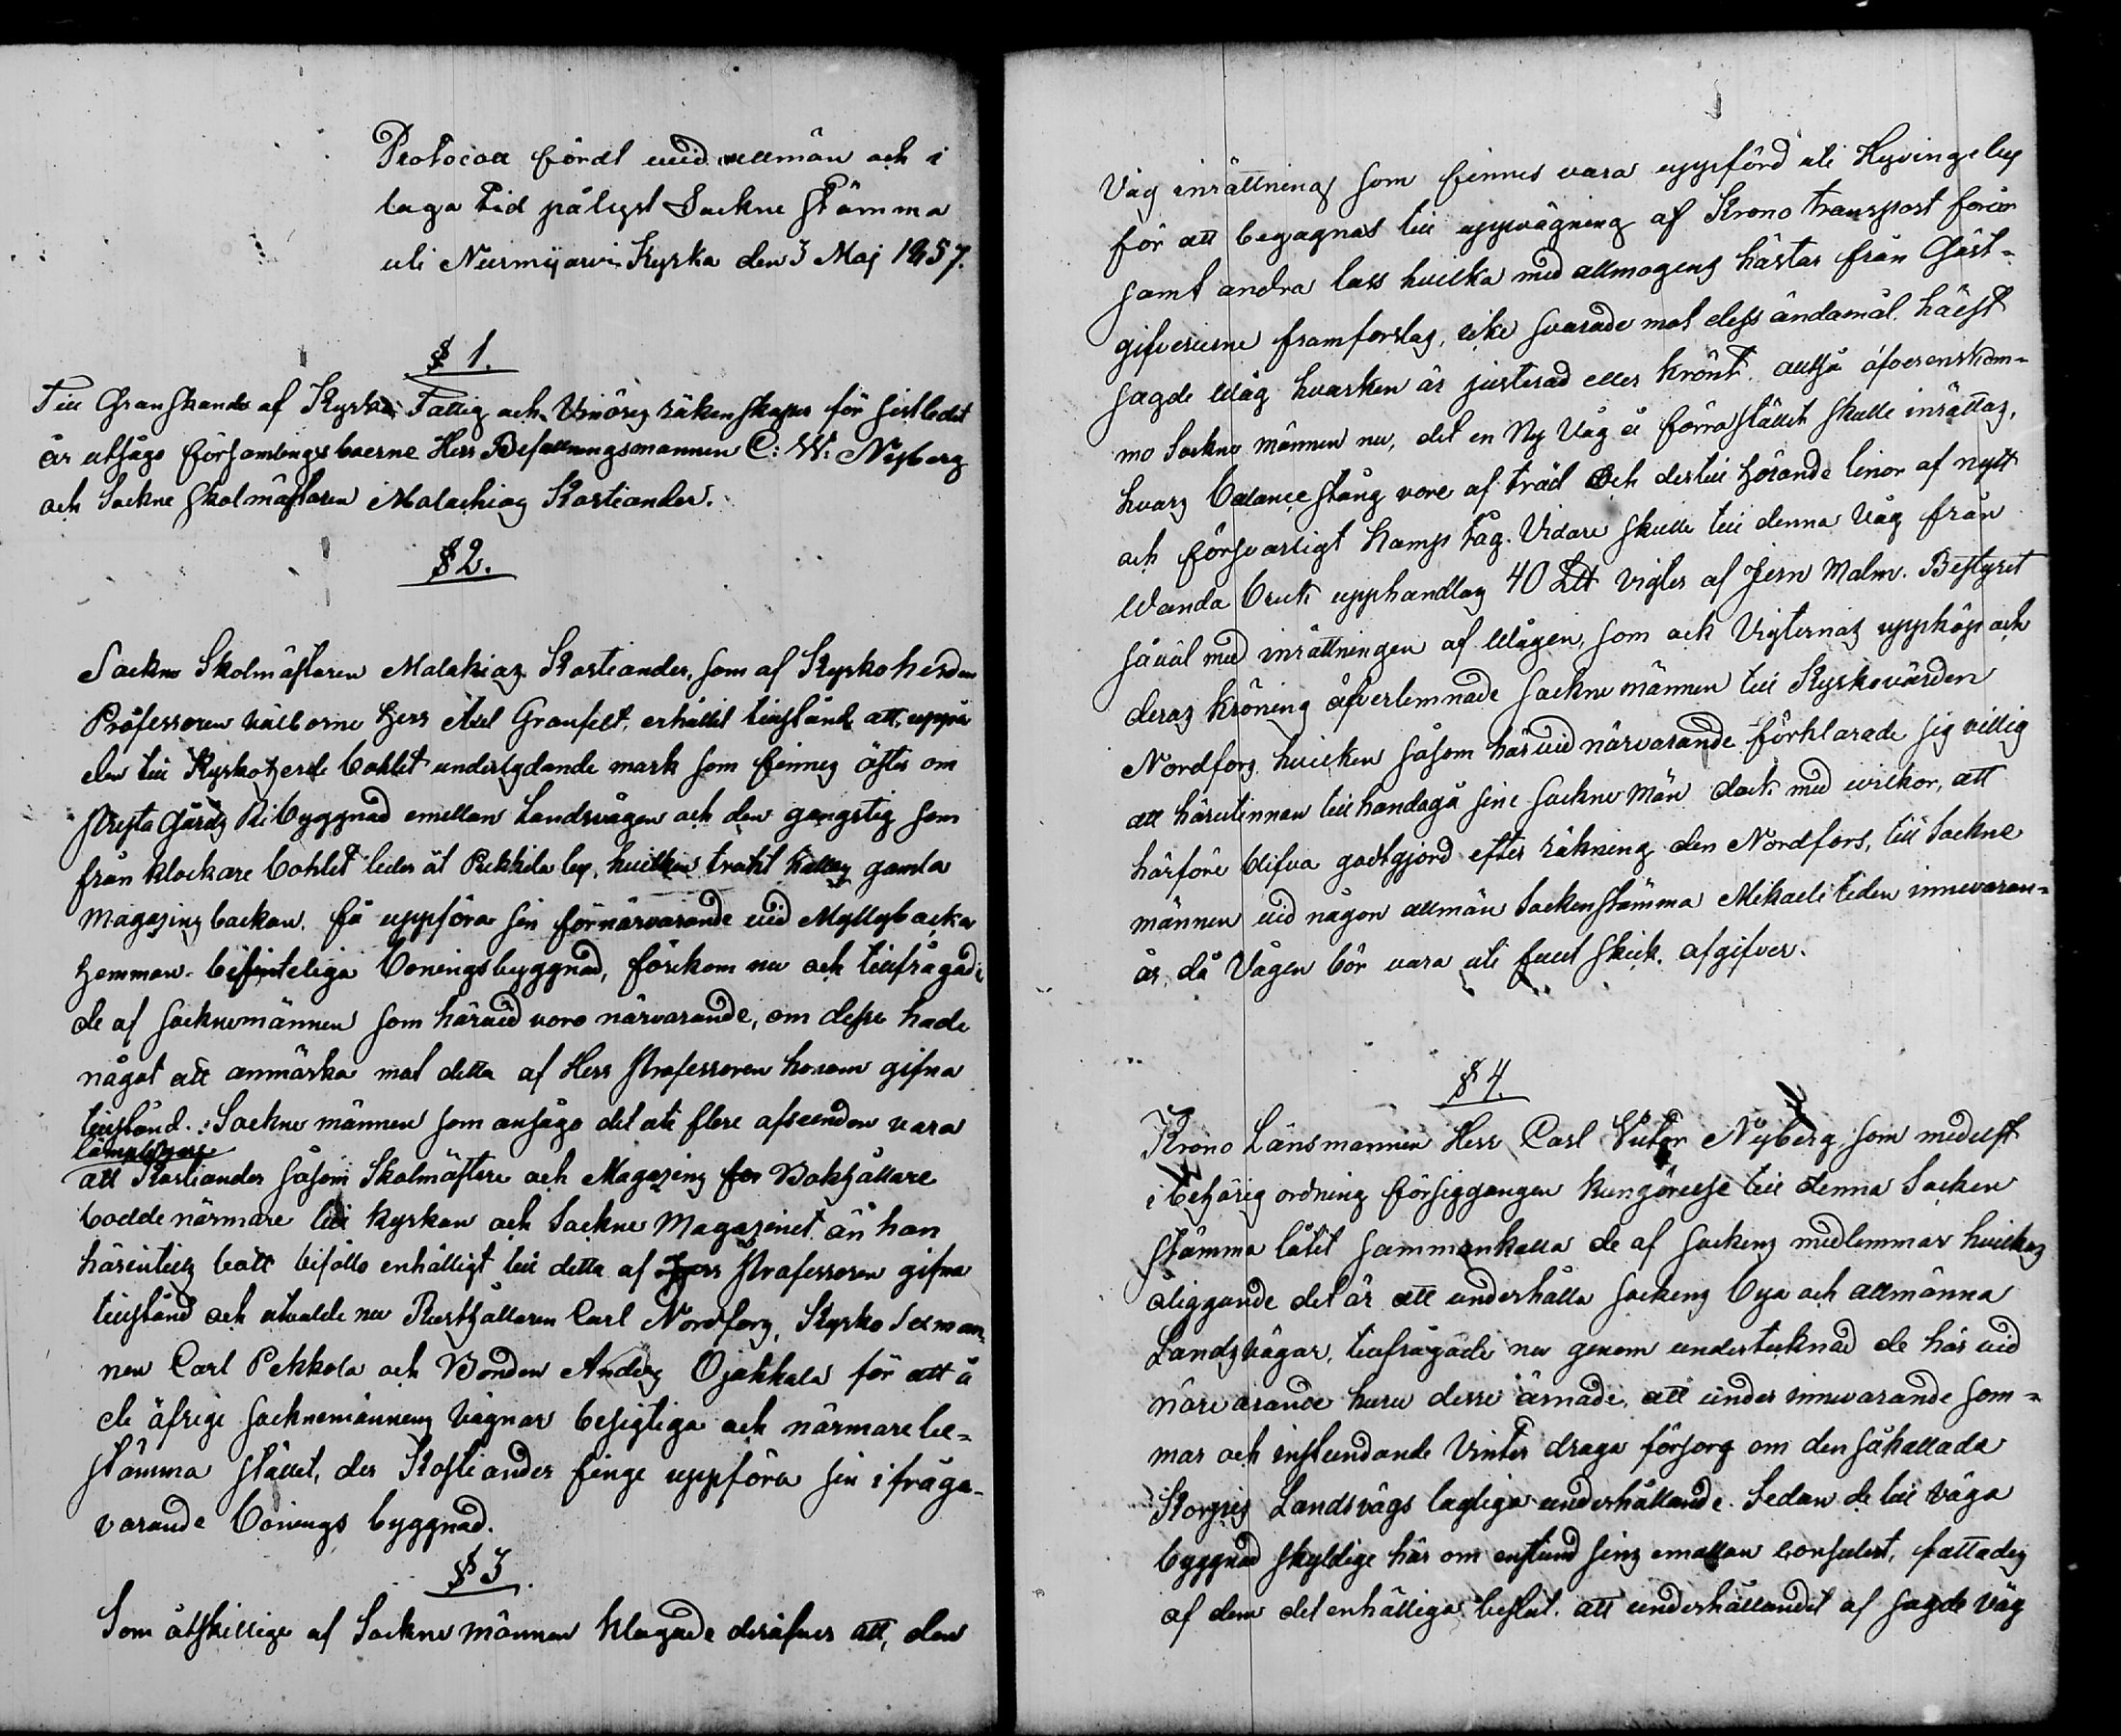 Protocoll fördt uid allmän och i
laga tid pålyst Sockne stämma
uti Nurmijärvi Kyrka den 3 Maj 1857.
§ 1.
Till Granskande af Kyrko, Fattig och räkenskaper för sistledit
år utsågo församlingsboerne Herr Befallningsmannen C: W: Nyberg
och Sockne skolmästaren Malachias Kostiander.
§ 2.
Sockne Skolmästaren Malakias Kostiander, som af Kyrkoherden
Professoren välborne Herr Axel Granfelt, erhållit tillstånd att, uppå
den till Kyrkoherde bohlet underlydande mark som finnes öster om
Prestagårds Ri byggnad emellan Landsvägen och den gangstig som
från klockare bohlet leder åt Pekkila by, hvilken trakt kallas gamla
magasins backan, få uppföra sin förnärvarande vid Myllybacka
hemman befinteliga boningsbyggnad, förekom nu och tillfrågade
de af socknemännen som härvid voro närvarande, om desse hade
något att anmärka mot detta af Herr Professoren honom gifna
tillstånd. Sockne männen som ansågo det uti flere afseenden vara
lämpligare
att Kostiander såsom Skolmästare och Magasins Bokhållare
bodde närmare till kyrkan och Sockne Magazinet än han
härintills bott biföllo enhälligt till detta af Herr Professoren gifna
tillstånd och utvalde nu Rusthållaren Carl Nordfors, Kyrko Sexman-
nen Carl Pekkola och Bonden Anders Ojakkala för att å
de öfrige socknemännens vägnar besigtiga och närmare be-
stämma stället, der Kostiander finge uppföra sin ifråga-
varande bonings byggnad.
§ 3.
Som åtskillige af Sockne männen klagade deröfver att, den
Våg inrättning som finnes vara uppförd uti Hyvinge by
för att begagnas till uppvägning af Krono transport föror
samt andra lass hvilka med allmogens hästar från Gäst-
gifverierne framforslas, icke svarade mot dess ändamål hälst
sagde Våg hvarken är justerad eller krönt, alltså öfverenskom-
mo Sockne männen nu, det en Ny Våg å förra stället skulle inrättas,
hvars balance stång vore af träd och dertill hörande linor af nytt
och försvarligt hamp tåg. Vidare skulle till denna Våg från
Wanda bruk upphandlas 40 L℔ vigter af Jern Malm. Bestyret
såväl med inrättningen af Vågen, som ock Vigternas uppköp och
deras kröning öfverlemnade sockne männen till Kyrkovärden
Nordfors hvilken såsom härvid närvarande förklarade sig villig
att härutinnan tillhandagå sine sockne män dock med vilkor, att
härföre blifva godtgjord efter räkning den Nordfors, till Sockne
männen vid någon allmän Sockenstämma Mikaeli tiden innevaran-
år, då Vågen bör vara uti fullt skick, afgifver.
§ 4.
Krono Länsmannen Herr Carl Victor Nyberg som medelst
i behörig ordning försiggangen kungörelse till denna Socken
stämma låtit sammankalla de af sockens medlemmar hvilkas
åliggande det är att underhålla sockens bya och allmänna
Landsvägar, tillfrågade nu genom undertecknad de här vid
närvarande huru desse ärnade, att under innevarande som-
mar och instundande Vinter draga försorg om den såkallada
Korpis Landsvägs lagliga underhållande. Sedan de till väga
byggnad skyldige här om enstund sins emellan consulert, fattades
af dem det enhälliga beslut, att underhållandet af sagde väg